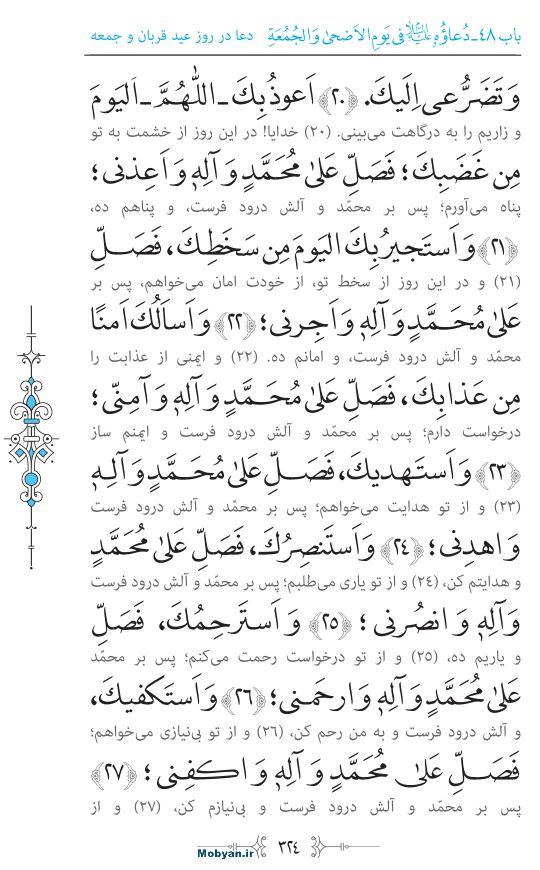 باب ۴۸ـ دُعاؤُهُ علیه‌السلام فی یَومِ الاَضحیٰ وَالجُمُعَةِ دعا در روز عید قربان و جمعه
وَ تَضَرُّعی اِلَیكَ. ﴿۲۰﴾ اَعوذُ بِكَ ـ اللّٰهُمَّ ـ الیَومَ
و زاریم را به درگاهت می‌بینی. (۲۰) خدایا! در این روز از خشمت به تو
مِن غَضَبِكَ؛ فَصَلِّ عَلیٰ مُحَمَّدٍ وَ آلِهٖ وَ اَعِذنی؛
پناه می‌آورم؛ پس بر محمّد و آلش درود فرست، و پناهم ده،
﴿۲۱﴾ وَ اَستَجیرُ بِكَ الیَومَ مِن سَخَطِكَ، فَصَلِّ
(۲۱) و در این روز از سخط تو، از خودت امان می‌خواهم، پس بر
عَلیٰ مُحَمَّدٍ وَ آلِهٖ وَ اَجِرنی؛ ﴿۲۲﴾ وَ اَسأَلُكَ اَمنًا
محمّد و آلش درود فرست، و امانم ده. (۲۲) و ایمنی از عذابت را
مِن عَذابِكَ، فَصَلِّ عَلیٰ مُحَمَّدٍ وَ آلِهٖ وَ آمِنّی؛
درخواست دارم؛ پس بر محمّد و آلش درود فرست و ایمنم ساز
﴿۲۳﴾ وَ اَستَهدیكَ، فَصَلِّ عَلیٰ مُحَمَّدٍ وَ آلِهٖ
(۲۳) و از تو هدایت می‌خواهم؛ پس بر محمّد و آلش درود فرست
وَ اهدِنی؛ ﴿۲۴﴾ وَ اَستَنصِرُكَ، فَصَلِّ عَلیٰ مُحَمَّدٍ
و هدایتم کن، (۲۴) و از تو یاری می‌طلبم؛ پس بر محمّد و آلش درود فرست
وَ آلِهٖ وَ انصُرنی؛ ﴿۲۵﴾ وَ اَستَرحِمُكَ، فَصَلِّ
و یاریم ده، (۲۵) و از تو درخواست رحمت می‌کنم؛ پس بر محمّد
عَلیٰ مُحَمَّدٍ وَ آلِهٖ وَ ارحَمنی؛ ﴿۲۶﴾ وَ اَستَكفیكَ،
و آلش درود فرست و به من رحم کن، (۲۶) و از تو بی‌نیازی می‌خواهم؛
فَصَلِّ عَلیٰ مُحَمَّدٍ وَ آلِهٖ وَ اكفِنی؛ ﴿۲۷﴾
پس بر محمّد و آلش درود فرست و بی‌نیازم کن، (۲۷) و از
۳۲۴
Mobyan.ir